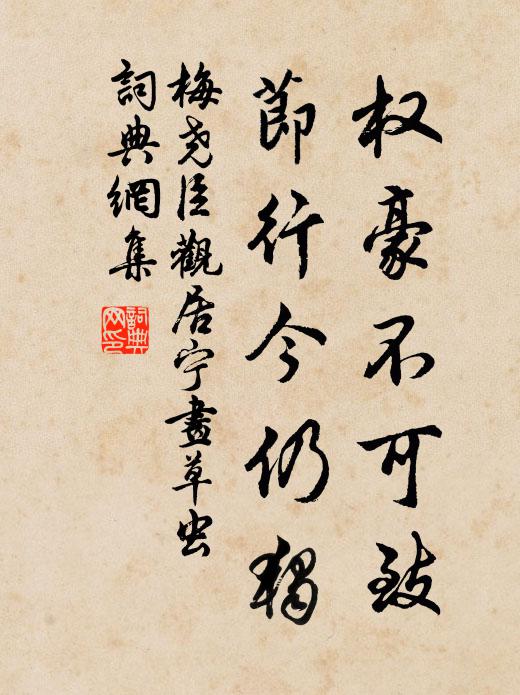 权豪不可致
節行今仍獨
梅尧臣觀居宁畫草虫
詞典網集
詞典网印